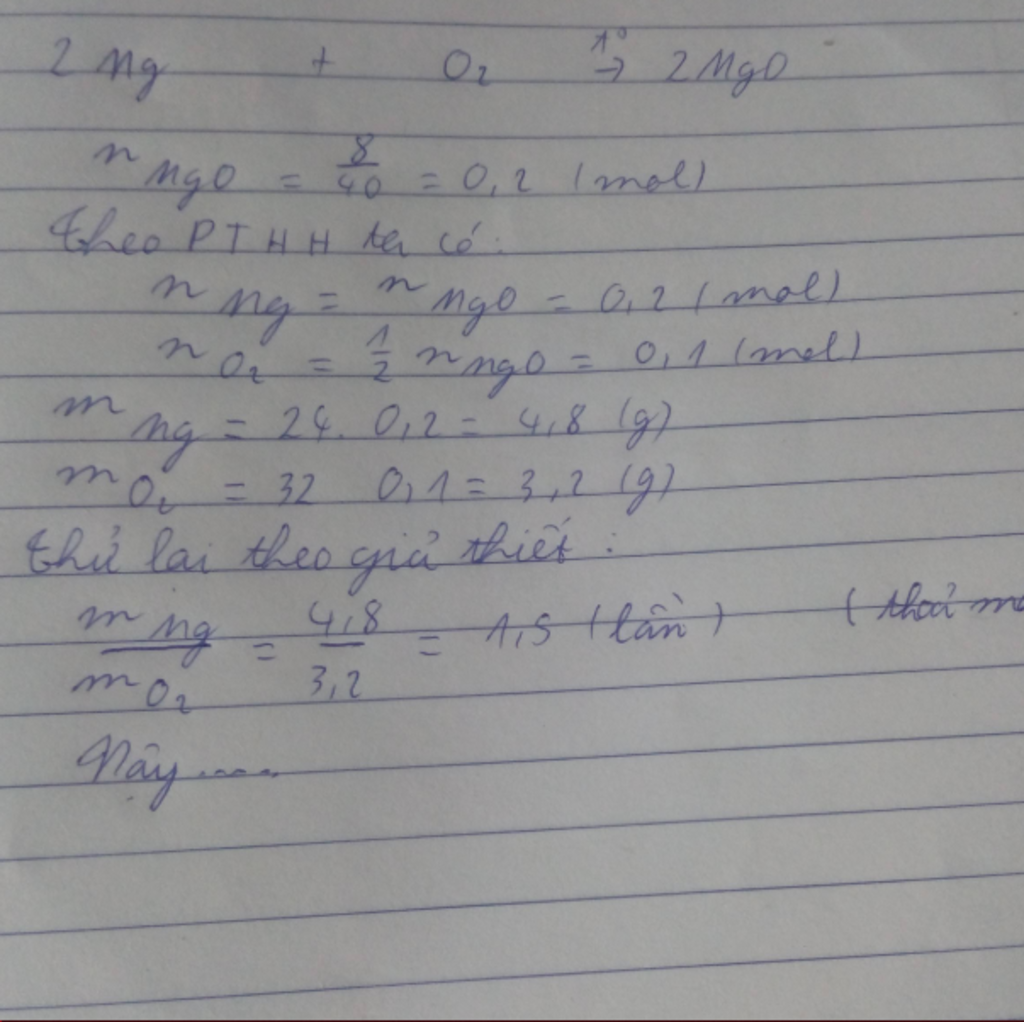 2 Mg + O₂ t°→ 2MgO
n MgO = 8/40 = 0,2 (mol)
Theo PTHH ta có:
n Mg = n MgO = 0,2 (mol)
n O₂ = 1/2 n MgO = 0,1 (mol)
m Mg = 24. 0,2 = 4,8 (g)
m O₂ = 32 0,1 = 3,2 (g)
thử lại theo giả thiết :
m Mg / m O₂ = 4,8 / 3,2 = 1,5 (lần) (thoả
Vậy.....